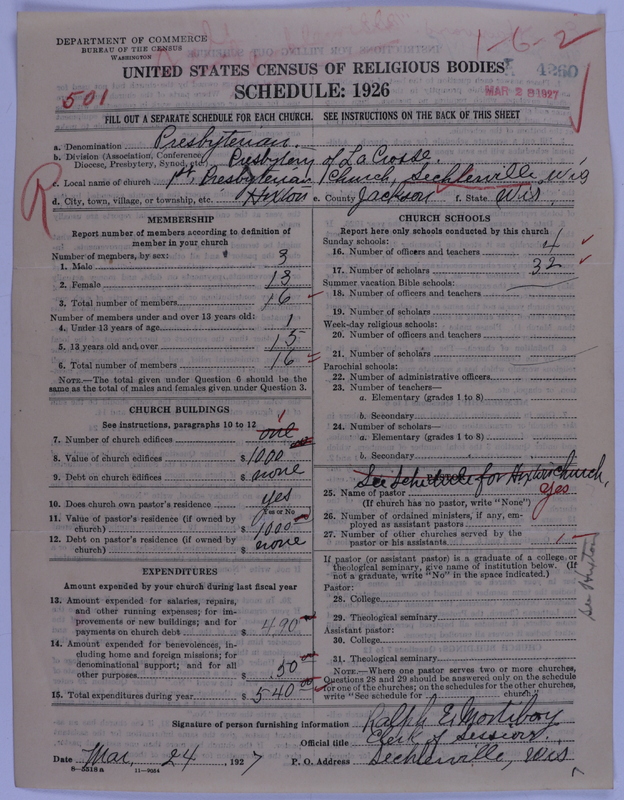 DEPARTMENT OF COMMERCE
BUREAU OF THE CENSUS
WASHINGTON
1-6-2
UNITED STATES CENSUS OF RELIGIOUS BODIES
4260
501
SCHEDULE: 1926
MAR 28 1927
FILL OUT A SEPARATE SCHEDULE FOR EACH CHURCH. SEE INSTRUCTIONS ON THE BACK OF THIS SHEET
a. Denomination Presbyterian
b. Division (Association, Conference, Diocese, Presbytery, Synod, etc.) Presbytery of La Crosse.
R
c. Local name of church 1st Presbyterian Church, Sechlerville, Wis
d. City, town, village, or township, etc. Hixton e. County Jackson f. State Wis.
MEMBERSHIP
Report number of members according to definition of
member in your church
Number of members, by sex:
1. Male 3
2. Female 13
3. Total number of members 16
Number of members under and over 13 years old:
4. Under 13 years of age 1
5. 13 years old and over 15
6. Total number of members 16
NOTE.—The total given under Question 6 should be the
same as the total of males and females given under Question 3.
CHURCH BUILDINGS
See instructions, paragraphs 10 to 12
7. Number of church edifices one
8. Value of church edifices $ 1000
9. Debt on church edifices $ none
10. Does church own pastor's residence yes
(Yes or No)
11. Value of pastor's residence (if owned by
church) $ 1000
12. Debt on pastor's residence (if owned by
church) $ none
EXPENDITURES
Amount expended by your church during last fiscal year
13. Amount expended for salaries, repairs,
and other running expenses; for im-
provements or new buildings; and for
payments on church debt $ 490
14. Amount expended for benevolences, in-
cluding home and foreign missions; for
denominational support; and for all
other purposes $ 50
15. Total expenditures during year $ 540
CHURCH SCHOOLS
Report here only schools conducted by this church
Sunday schools:
16. Number of officers and teachers 4
17. Number of scholars 32
Summer vacation Bible schools:
18. Number of officers and teachers
19. Number of scholars
Week-day religious schools:
20. Number of officers and teachers
21. Number of scholars
Parochial schools:
22. Number of administrative officers
23. Number of teachers—
a. Elementary (grades 1 to 8)
b. Secondary
24. Number of scholars—
a. Elementary (grades 1 to 8)
b. Secondary
See Schedule for Hixton church,
25. Name of pastor yes
(If church has no pastor, write "None")
26. Number of ordained ministers, if any, em-
ployed as assistant pastors
27. Number of other churches served by the
pastor or his assistants 1
If pastor (or assistant pastor) is a graduate of a college or
theological seminary, give name of institution below. (If
not a graduate, write "No" in the space indicated.)
Pastor:
28. College
29. Theological seminary
Assistant pastor:
30. College
31. Theological seminary
See Hixton
NOTE.—Where one pastor serves two or more churches,
Questions 28 and 29 should be answered only on the schedule
for one of the churches; on the schedules for the other churches,
write "See schedule for church"
Signature of person furnishing information Ralph E. Mortiboy
Official title Clerk of Session.
Date Mar. 24, 1927 P. O. Address Sechlerville, Wis
8—5518a 11—9034